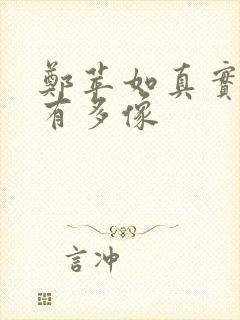 鄭苹如真實
有多像
言冲